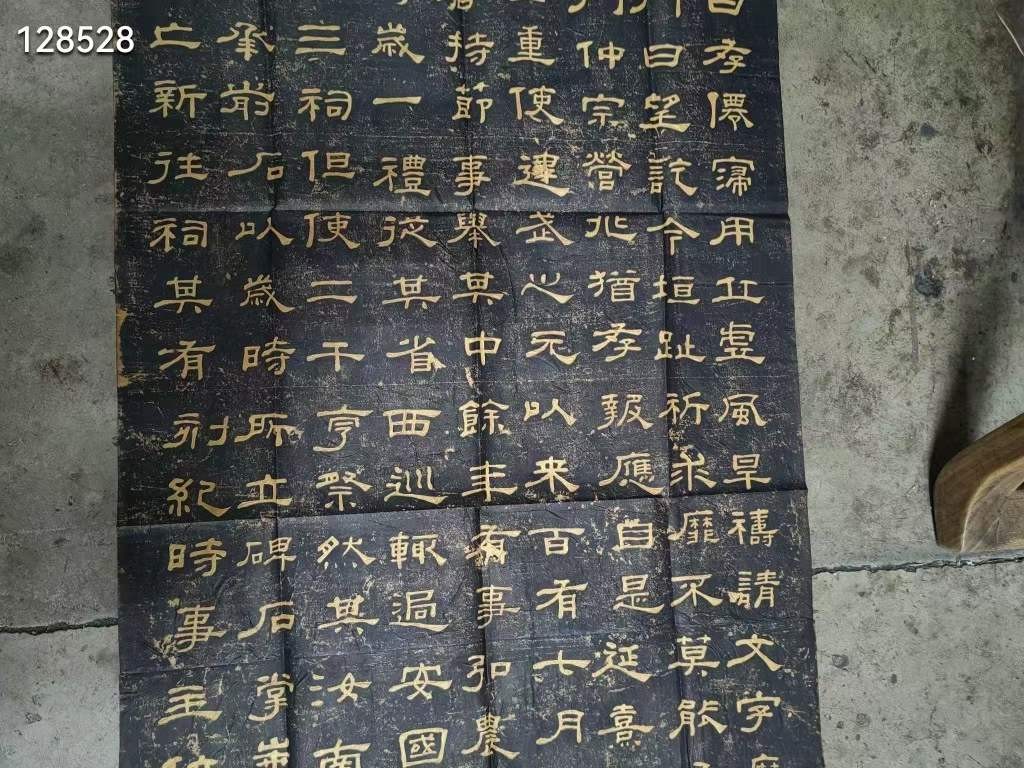 128528
存僊寖用丘虚風旱禱請文字
曰望訖今垣趾祈求靡不莫能
仲宗營兆猶存報應自是延熹
重使建武之元以来百有七月
持節事舉其中餘年有事弘農
歲一禮從其省西巡輒過安國
三祠但使二千亨祭然其汝南
承前石以歲時所立碑石掌
亡新往祠其有刻紀時事主